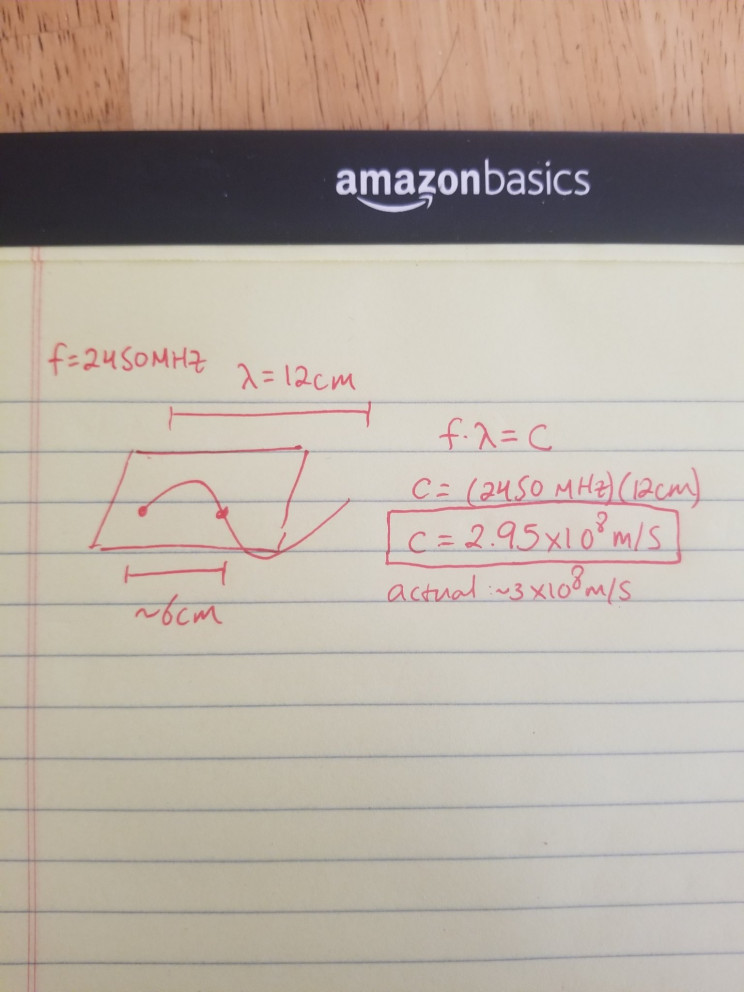 amazonbasics
f=2450MHZ
λ=12cm
~6cm
f·λ=C
C=(2450 MHz)(12cm)
C=2.95x10⁸m/s
actual:~3x10⁸m/s